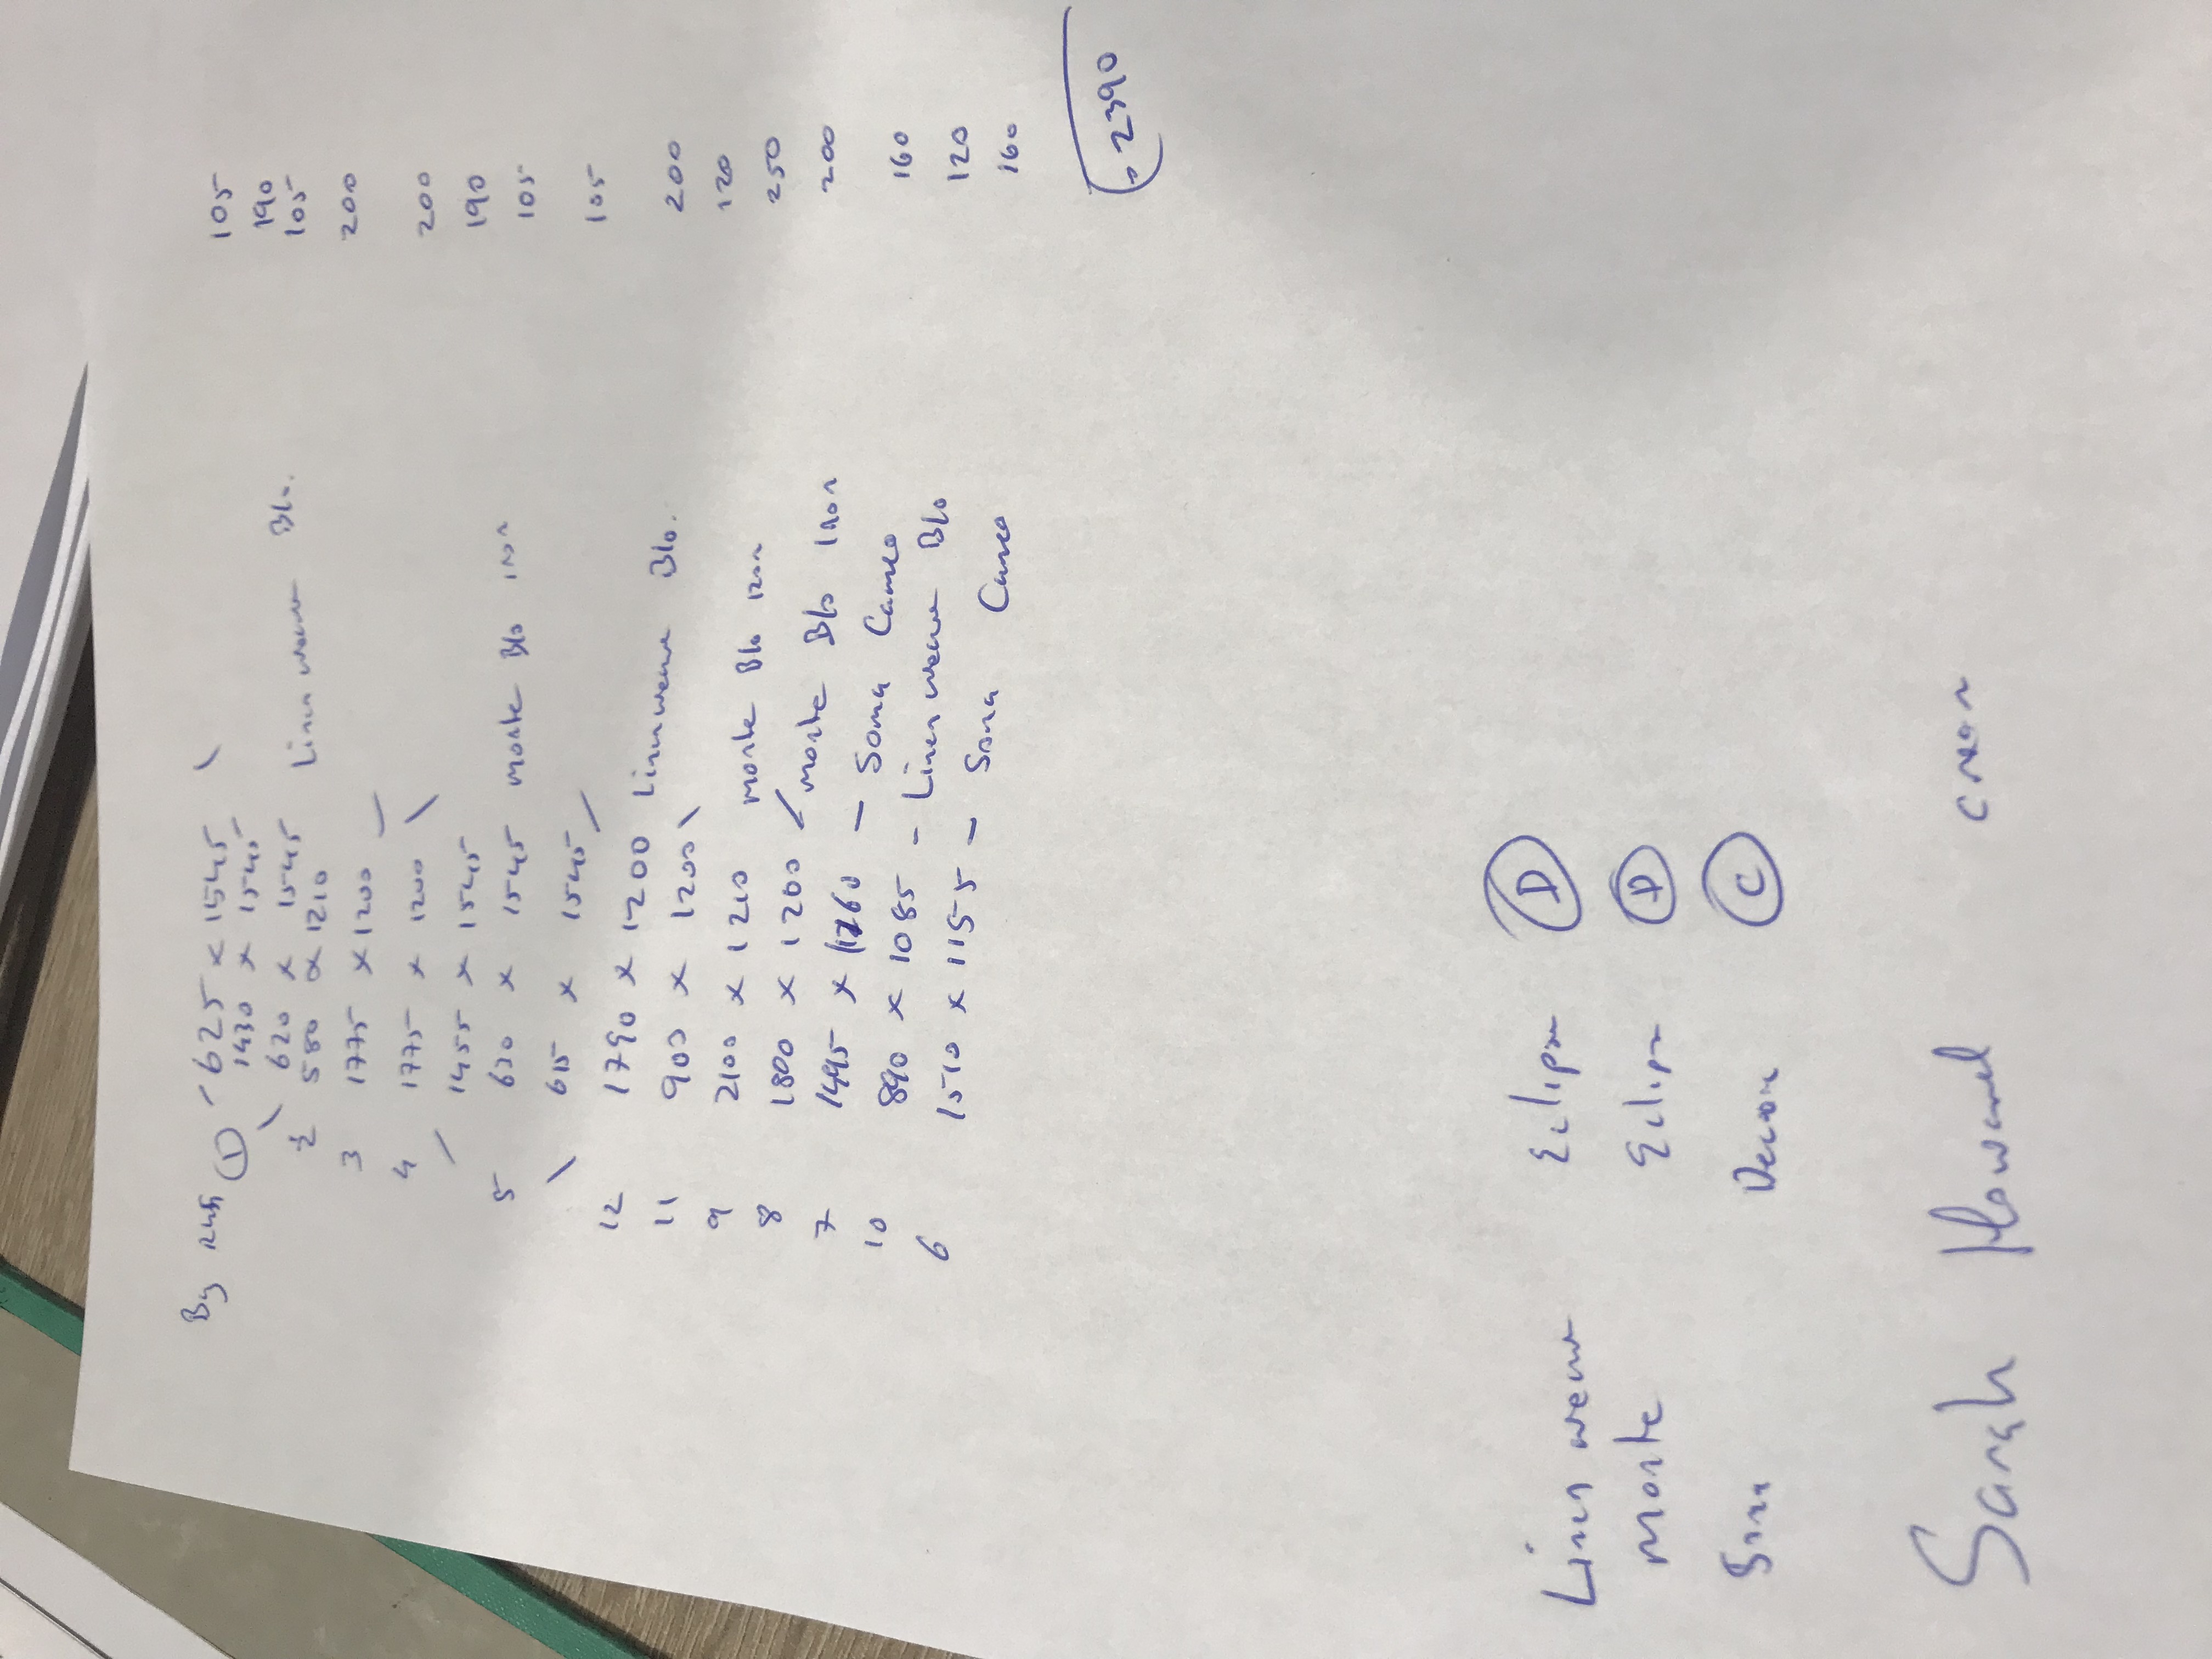 By
1 625 x 1545 105
1430 x 1545 190
620 x 1545 Linen weave Blo. 105
2 580 x 1210
3 1775 x 1200 200
4 1775 x 1200 200
1455 x 1545 190
5 630 x 1545 Monte Blo 105
615 x 1545 105
12 1790 x 1200 Linen weave Blo. 200
11 900 x 1200 120
9 2100 x 1210 Monte Blo 250
8 1800 x 1200 Monte Blo 200
7 1495 x 1160 - Soma Cameo 160
10 890 x 1085 - Linen weave Blo 120
6 1510 x 1155 - Soma Cameo 160
2390
Linen weave Eclipse D
Monte Eclipse
Soma Decora C
Sarah Howard